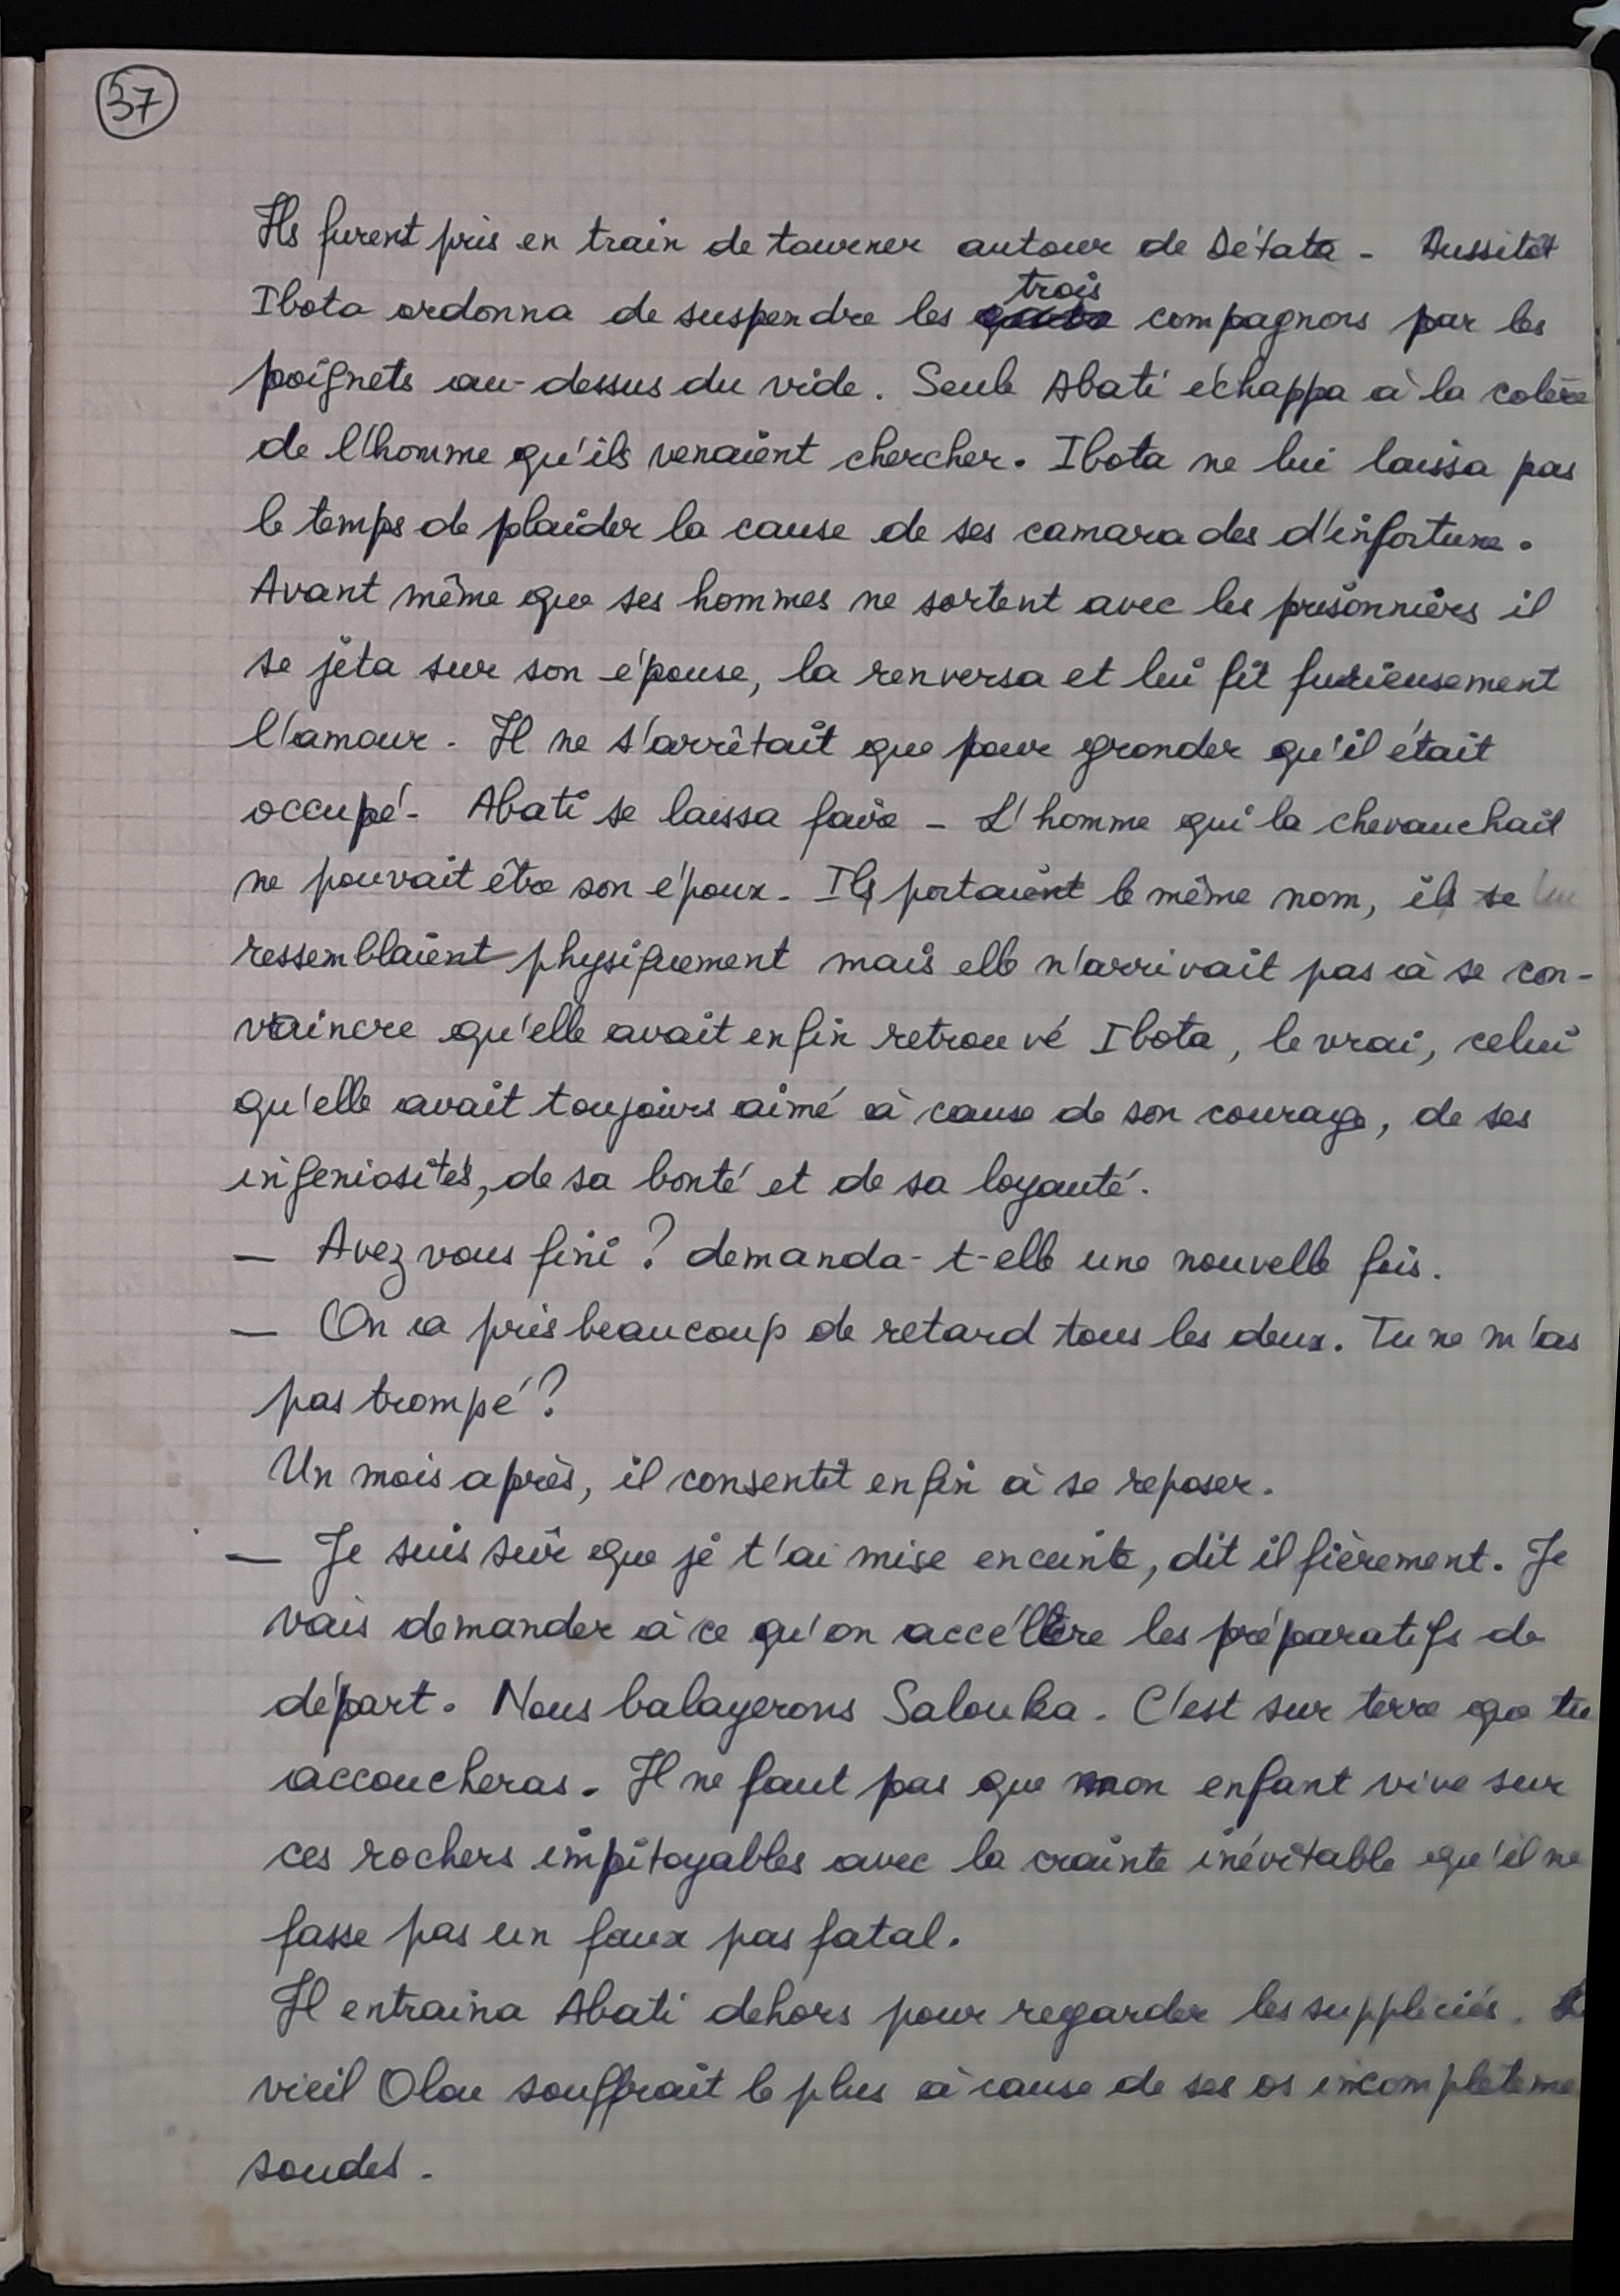 37
Ils furent pris en train de tourner autour de Détata - Aussitôt
trois
Ibota ordonna de suspendre les compagnons par les
poignets au-dessus du vide. Seule Abati échappa à la colère
de l'homme qu'ils venaient chercher. Ibota ne lui laissa pas
le temps de plaider la cause de ses camarades d'infortune.
Avant même que ses hommes ne sortent avec les prisonniers il
se jeta sur son épouse, la renversa et lui fit furieusement
l'amour. Il ne s'arrêtait que pour gronder qu'il était
occupé. Abati se laissa faire - L'homme qui la chevauchait
ne pouvait être son époux. Ils portaient le même nom, ils se
ressemblaient physiquement mais elle n'arrivait pas à se con-
vaincre qu'elle avait enfin retrouvé Ibota, le vrai, celui
qu'elle avait toujours aimé à cause de son courage, de ses
ingeniosités, de sa bonté et de sa loyauté.
— Avez vous fini ? demanda-t-elle une nouvelle fois.
— On a pris beaucoup de retard tous les deux. Tu ne m'as
pas trompé ?
Un mois après, il consentit enfin à se reposer.
— Je suis sûr que je t'ai mise enceinte, dit il fièrement. Je
vais demander à ce qu'on accélère les préparatifs de
départ. Nous balayerons Salouka. C'est sur terre que tu
accoucheras. Il ne faut pas que mon enfant vive sur
ces rochers impitoyables avec la crainte inévitable qu'il ne
fasse pas un faux pas fatal.
Il entraina Abati dehors pour regarder les suppliciés. Le
vieil Olou souffrait le plus à cause de ses os incompleteme
soudés.